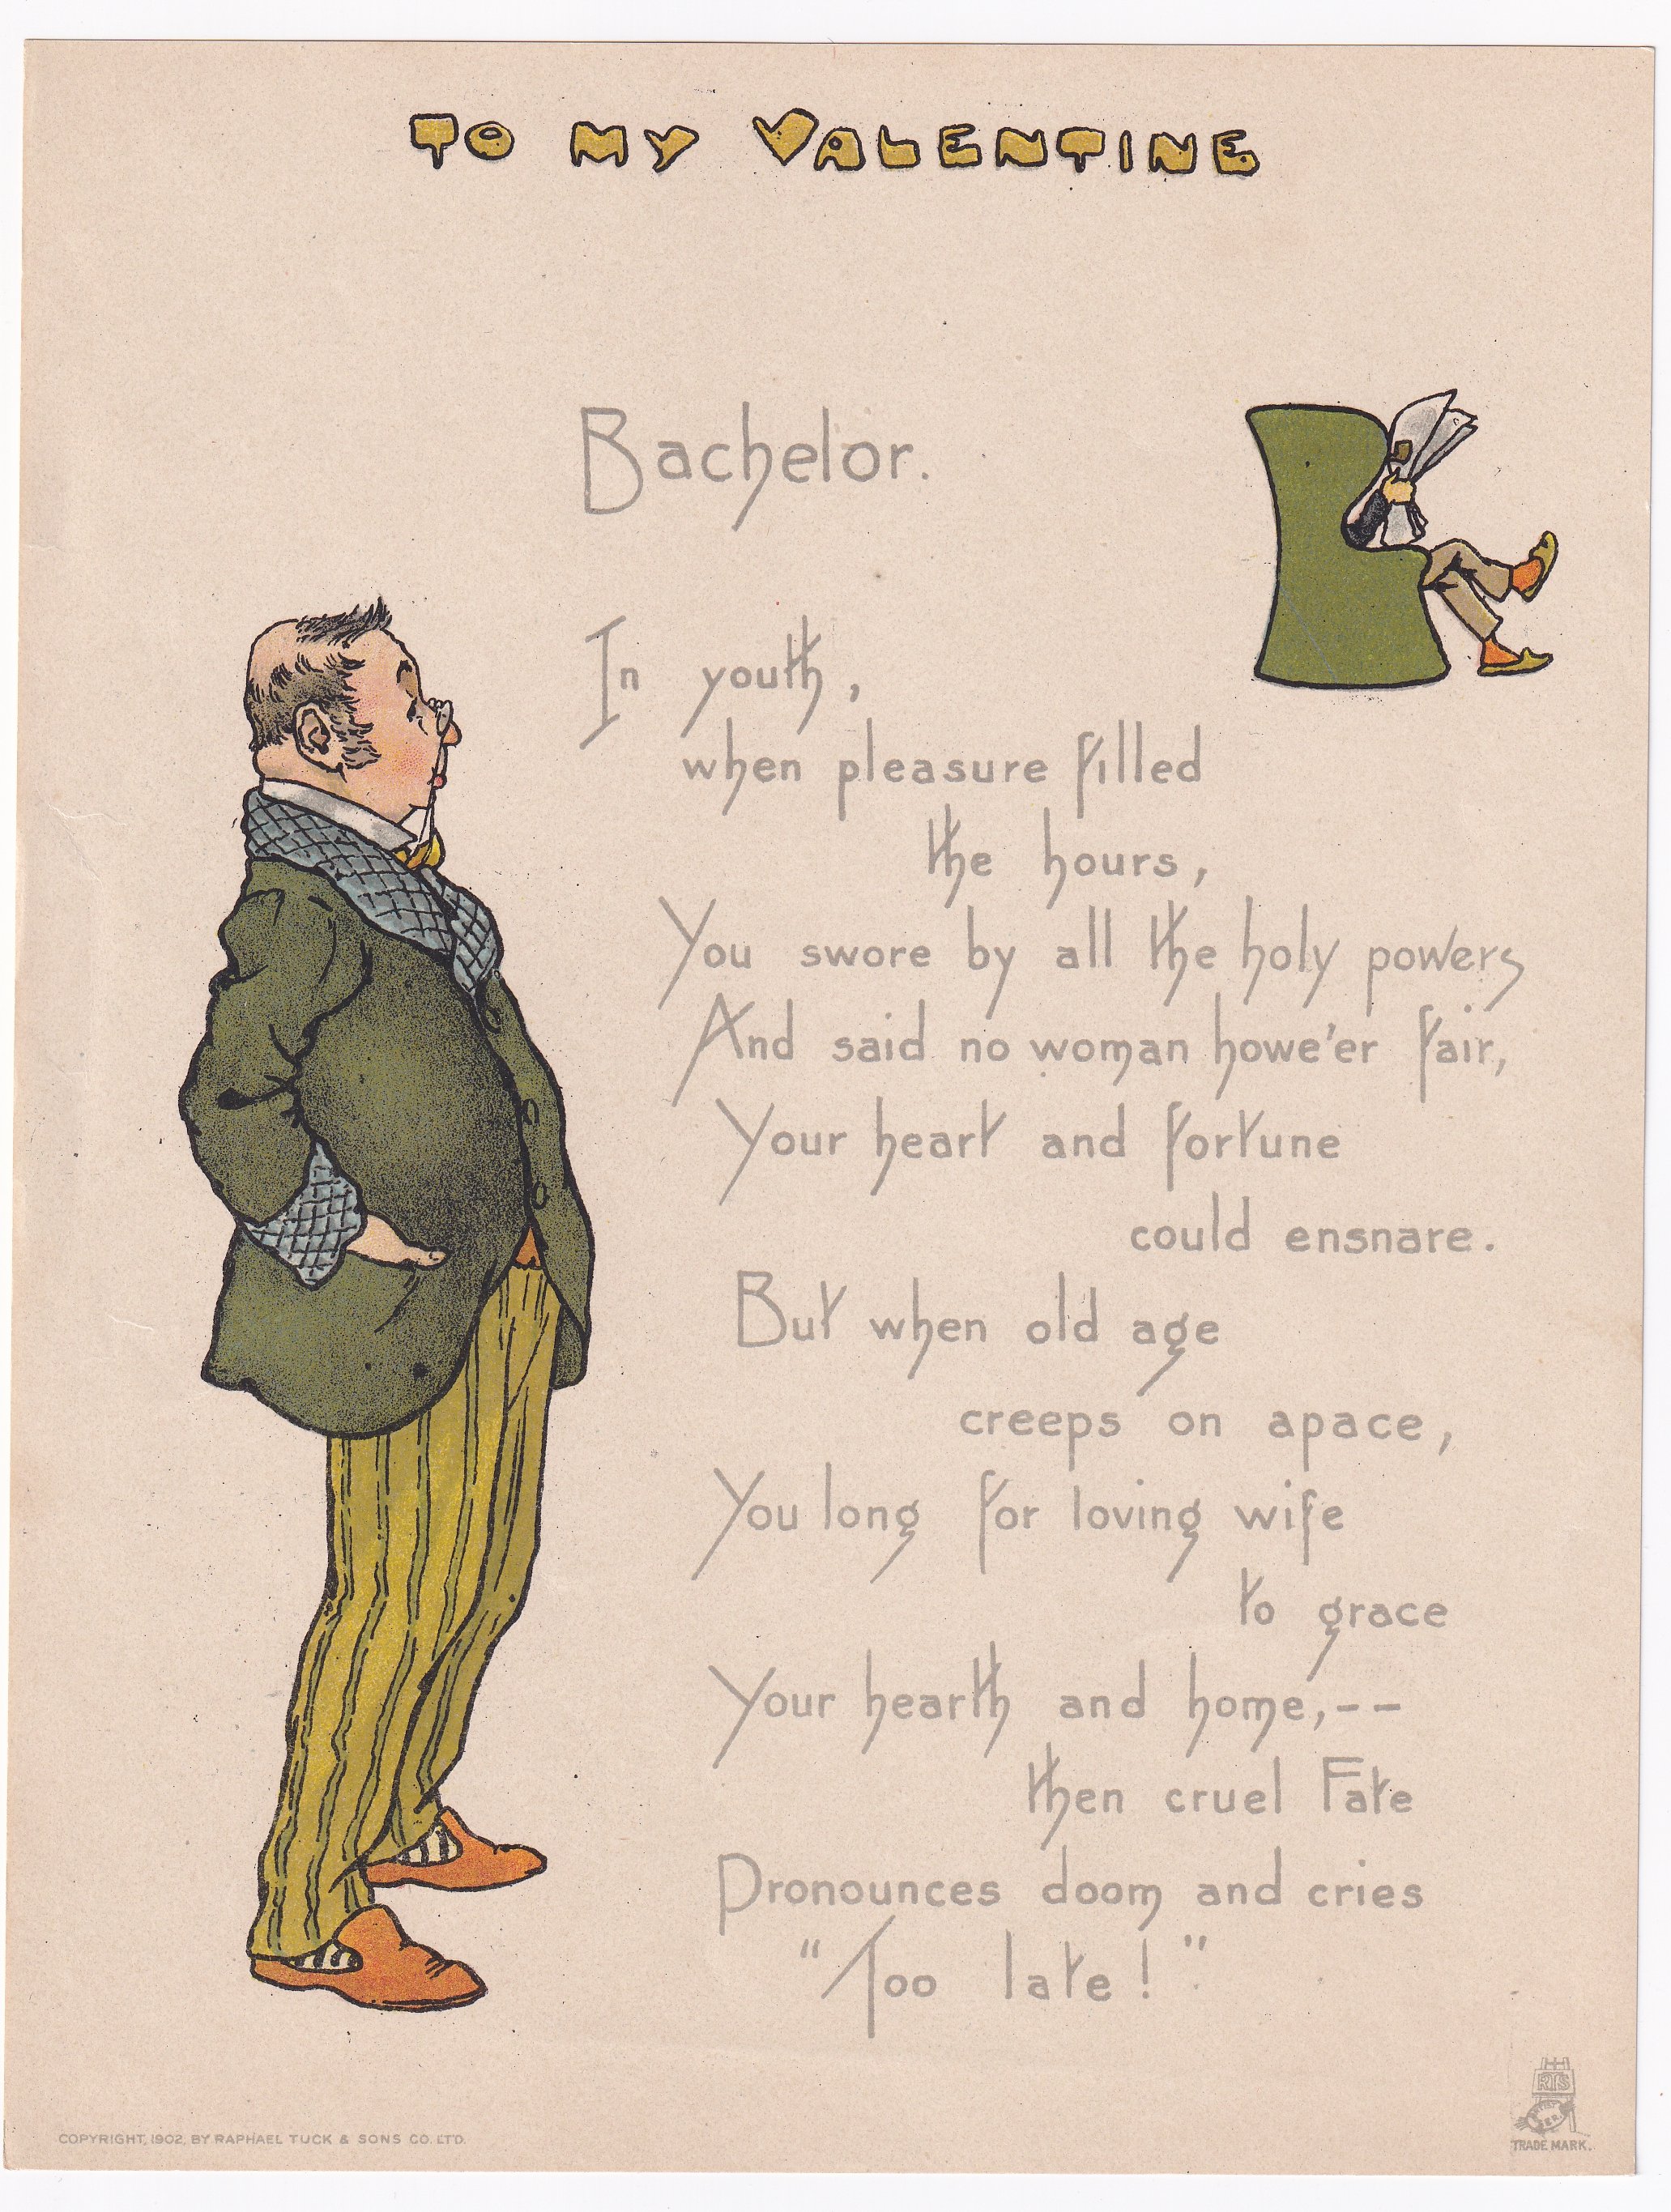 TO MY VALENTINE
Bachelor.
In youth,
when pleasure filled
the hours,
You swore by all the holy powers
And said no woman howe'er fair,
Your heart and fortune
could ensnare.
But when old age
creeps on apace,
You long for loving wife
to grace
Your hearth and home,--
then cruel Fate
Pronounces doom and cries
"Too late!"
RTS
COPYRIGHT, 1902, BY RAPHAEL TUCK & SONS CO. LTD.
TRADE MARK.